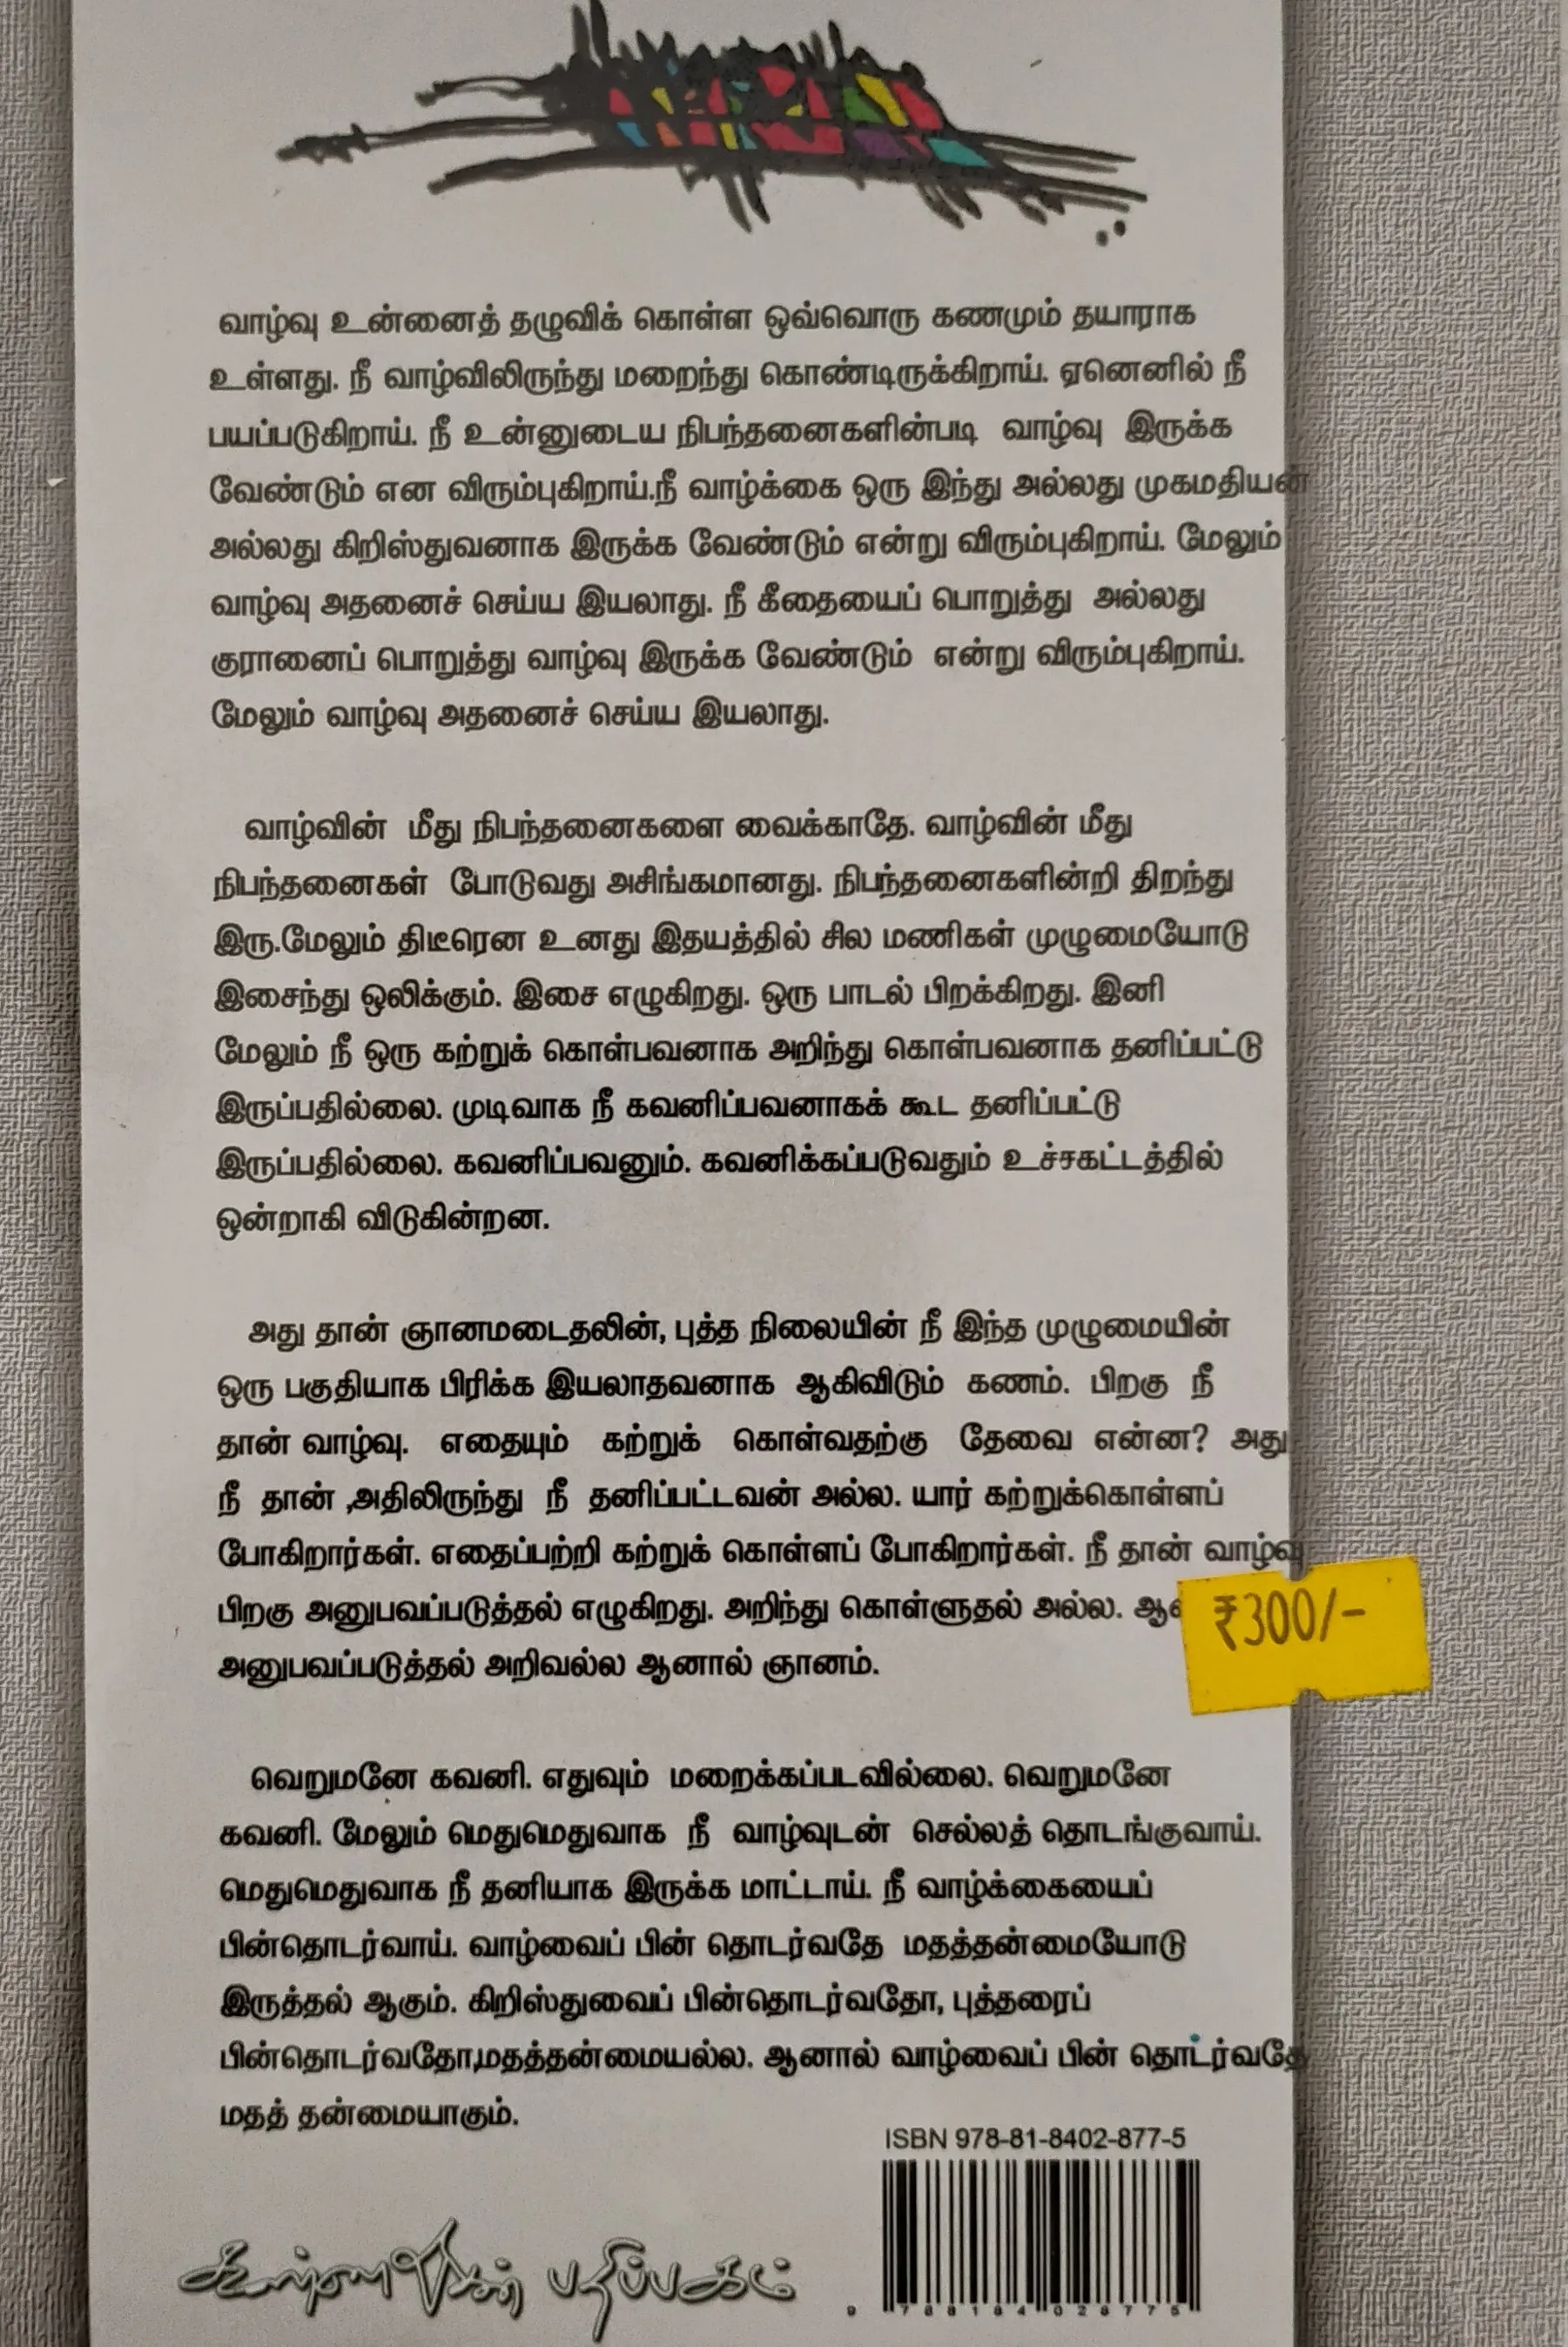 வாழ்வு உன்னைத் தழுவிக் கொள்ள ஒவ்வொரு கணமும் தயாராக
உள்ளது. நீ வாழ்விலிருந்து மறைந்து கொண்டிருக்கிறாய். ஏனெனில் நீ
பயப்படுகிறாய். நீ உன்னுடைய நிபந்தனைகளின்படி வாழ்வு இருக்க
வேண்டும் என விரும்புகிறாய்.நீ வாழ்க்கை ஒரு இந்து அல்லது முகமதியன்
அல்லது கிறிஸ்துவனாக இருக்க வேண்டும் என்று விரும்புகிறாய். மேலும்
வாழ்வு அதனைச் செய்ய இயலாது. நீ கீதையைப் பொறுத்து அல்லது
குரானைப் பொறுத்து வாழ்வு இருக்க வேண்டும் என்று விரும்புகிறாய்.
மேலும் வாழ்வு அதனைச் செய்ய இயலாது.
வாழ்வின் மீது நிபந்தனைகளை வைக்காதே. வாழ்வின் மீது
நிபந்தனைகள் போடுவது அசிங்கமானது. நிபந்தனைகளின்றி திறந்து
இரு.மேலும் திடீரென உனது இதயத்தில் சில மணிகள் முழுமையோடு
இசைந்து ஒலிக்கும். இசை எழுகிறது. ஒரு பாடல் பிறக்கிறது. இனி
மேலும் நீ ஒரு கற்றுக் கொள்பவனாக அறிந்து கொள்பவனாக தனிப்பட்டு
இருப்பதில்லை. முடிவாக நீ கவனிப்பவனாகக் கூட தனிப்பட்டு
இருப்பதில்லை. கவனிப்பவனும். கவனிக்கப்படுவதும் உச்சகட்டத்தில்
ஒன்றாகி விடுகின்றன.
அது தான் ஞானமடைதலின், புத்த நிலையின் நீ இந்த முழுமையின்
ஒரு பகுதியாக பிரிக்க இயலாதவனாக ஆகிவிடும் கணம். பிறகு நீ
தான் வாழ்வு. எதையும் கற்றுக் கொள்வதற்கு தேவை என்ன? அது
நீ தான் ,அதிலிருந்து நீ தனிப்பட்டவன் அல்ல. யார் கற்றுக்கொள்ளப்
போகிறார்கள். எதைப்பற்றி கற்றுக் கொள்ளப் போகிறார்கள். நீ தான் வாழ்வு
பிறகு அனுபவப்படுத்தல் எழுகிறது. அறிந்து கொள்ளுதல் அல்ல.
₹300/-
அனுபவப்படுத்தல் அறிவல்ல ஆனால் ஞானம்.
வெறுமனே கவனி. எதுவும் மறைக்கப்படவில்லை. வெறுமனே
கவனி. மேலும் மெதுமெதுவாக நீ வாழ்வுடன் செல்லத் தொடங்குவாய்.
மெதுமெதுவாக நீ தனியாக இருக்க மாட்டாய். நீ வாழ்க்கையைப்
பின்தொடர்வாய். வாழ்வைப் பின் தொடர்வதே மதத்தன்மையோடு
இருத்தல் ஆகும். கிறிஸ்துவைப் பின்தொடர்வதோ, புத்தரைப்
பின்தொடர்வதோ,மதத்தன்மையல்ல. ஆனால் வாழ்வைப் பின் தொடர்வதே
மதத் தன்மையாகும்.
ISBN 978-81-8402-877-5
கண்ணதாசன் பதிப்பகம்
9 788184 028775